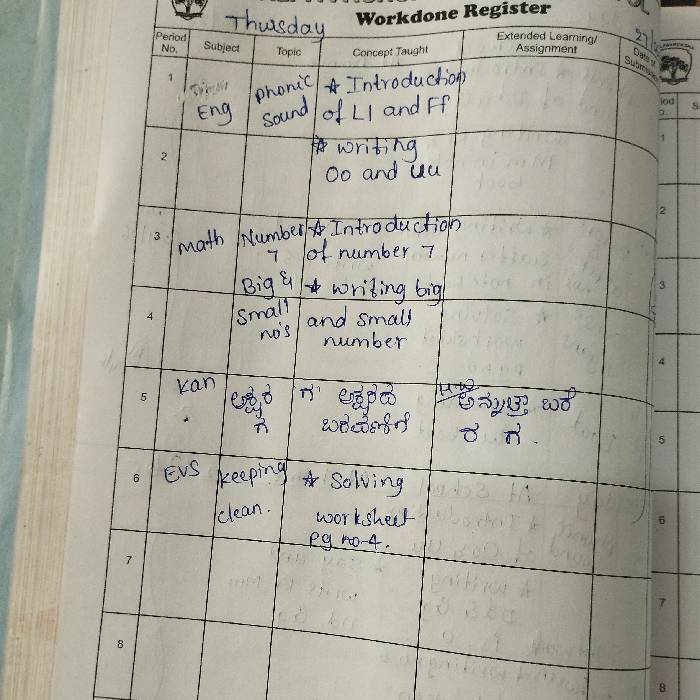 Thursday
Workdone Register
27/
Period No.
Subject
Topic
Concept Taught
Extended Learning/ Assignment
Date of
1
Eng
phonic sound
☆ Introduction of Ll and Ff
2
☆ writing Oo and Uu
3
math
Number 7
☆ Introduction of number 7
Big &
☆ writing big
4
Small no's
and small number
5
Kan
ಅಕ್ಷರ ಗ
'ಗ' ಅಕ್ಷರದ ಬರವಣಿಗೆ
ಬರೆ
ರ ಗ.
6
EVS
keeping clean.
☆ Solving worksheet pg no-4.
7
8
1
2
3
4
5
6
7
8